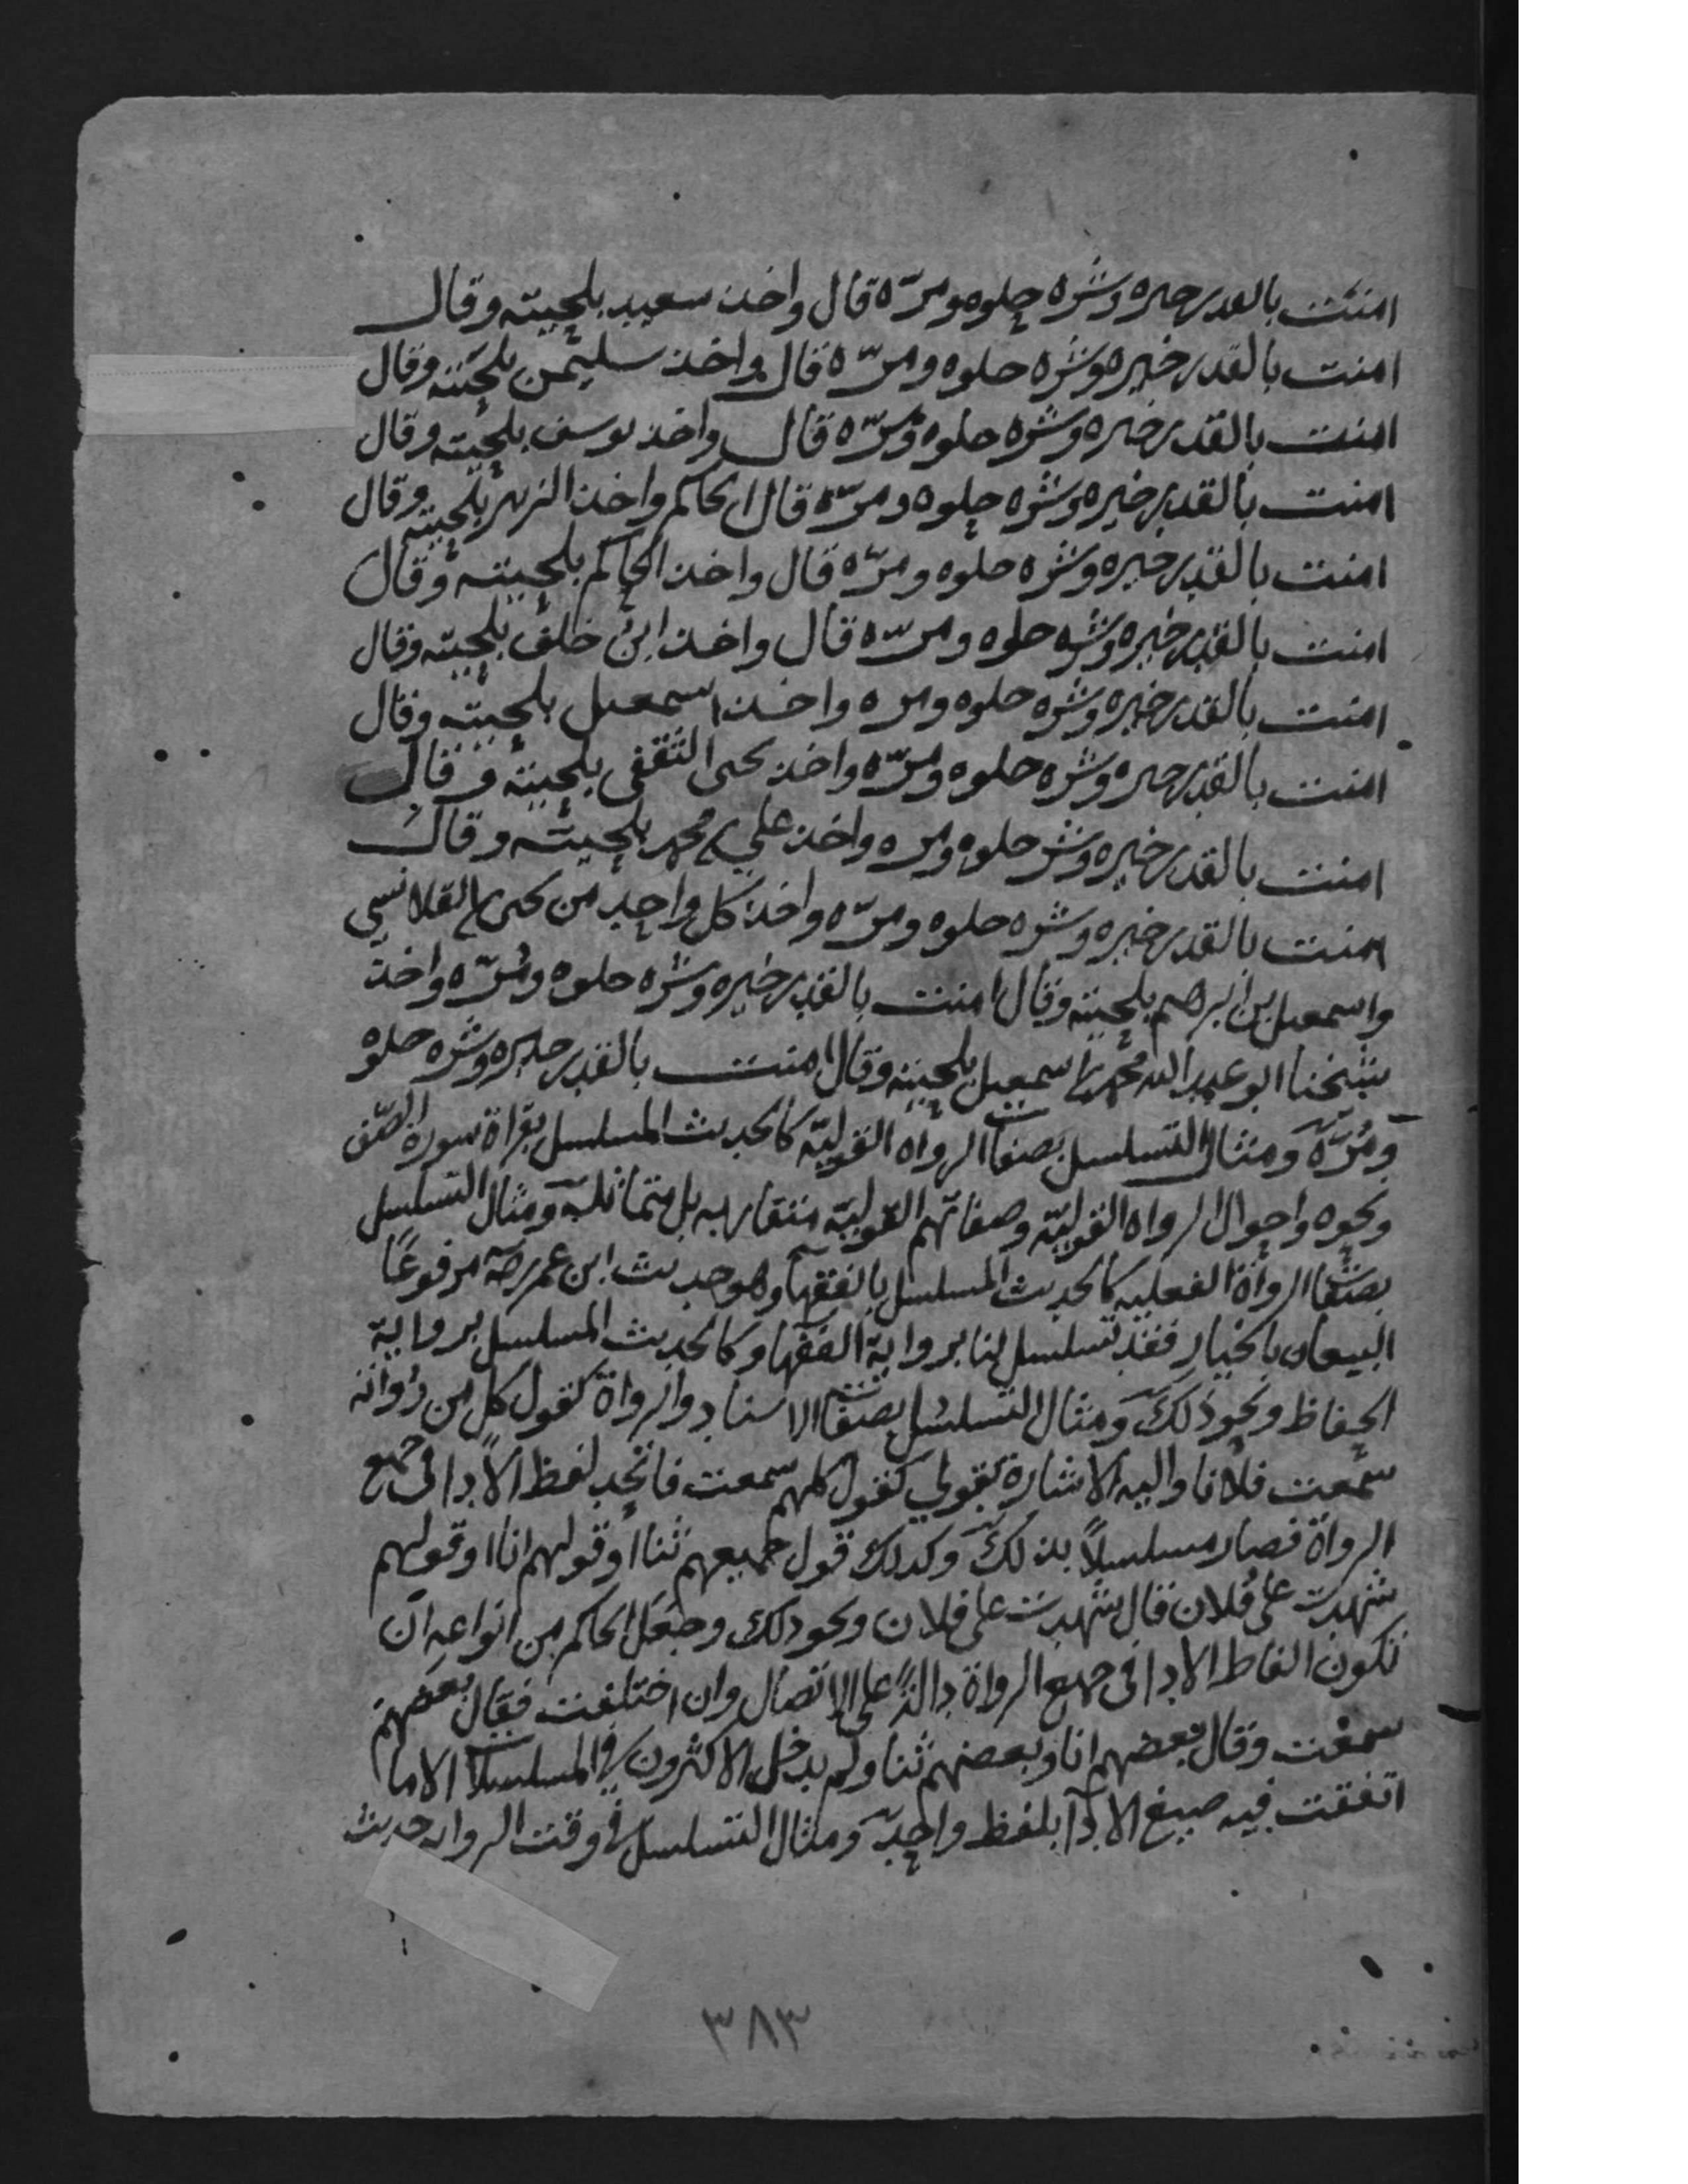 امنت بالقدر خيره وشره حلوه ومره قال واخذ سعيد بلحيته وقال
امنت بالقدر خيره وشره حلوه ومرّه قال واخذ سليمن بلحيته وقال
امنت بالقدر خيره وشره حلوه ومرّه قال واخذ يوسف بلحيته وقال
امنت بالقدر خيره وشره حلوه ومرّه قال الحاكم واخذ الزبير بلحيته وقال
امنت بالقدر خيره وشره حلوه ومرّه قال واخذ الحاكم بلحيته وقال
امنت بالقدر خيره وشره حلوه ومرّه قال واخذ ابن خلف بلحيته وقال
امنت بالقدر خيره وشره حلوه ومره واخذ اسمعيل بلحيته وقال
امنت بالقدر خيره وشره حلوه ومرّه واخذ يحيى الثقفي بلحيته وقال
امنت بالقدر خيره وشره حلوه ومره واخذ علي بن محمد بلحيته وقال
امنت بالقدر خيره وشره حلوه ومرّه واخذ كل واحد من يحيى بن القلانسي
واسمعيل بن ابرهيم بلحيته وقال امنت بالقدر خيره وشره حلوه ومرّه واخذ
شيخنا ابو عبد الله محمد بن اسمعيل بلحيته وقال امنت بالقدر خيره وشره حلوه
ومُرّه ومثال التسلسل بصفات الرواه القوليّه كالحديث المسلسل بقراة سورة الصّف
ونحوه واحوال الرواه القوليّه وصفاتهم القوليّه متقاربه بل متماثلة ومثال التسلسل
بصفات الرواة الفعليه كالحديث المسلسل بالفقها وهو حديث ابن عمر رضه مرفوعًا
البيعان بالخيار فقد تسلسل لنا برواية الفقها وكالحديث المسلسل برواية
الحفاظ ونحو ذلك ومثال التسلسل بصفات الاسناد والرواة كقول كل من رواته
سمعت فلانا واليه الاشارة بقولي كقول كلهم سمعت فاتحد لفظ الادا في جميع
الرواة فصار مسلسلاً بذلك وكذلك قول جميعهم ثنا او قولهم انا او قولهم
شهدت على فلان قال شهدت على فلان ونحو ذلك وجعل الحاكم من انواعه ان
تكون الفاظ الادا في جميع الرواة دالة على الاتصال وان اختلفت فقال بعضهم
سمعت وقال بعضهم انا وبعضهم ثنا ولم يدخل الاكثرون في المسلسلات الا ما
اتفقت فيه صيغ الادا بلفظ واحد ومثال التسلسل في وقت الروايه حديث
٣٨٣